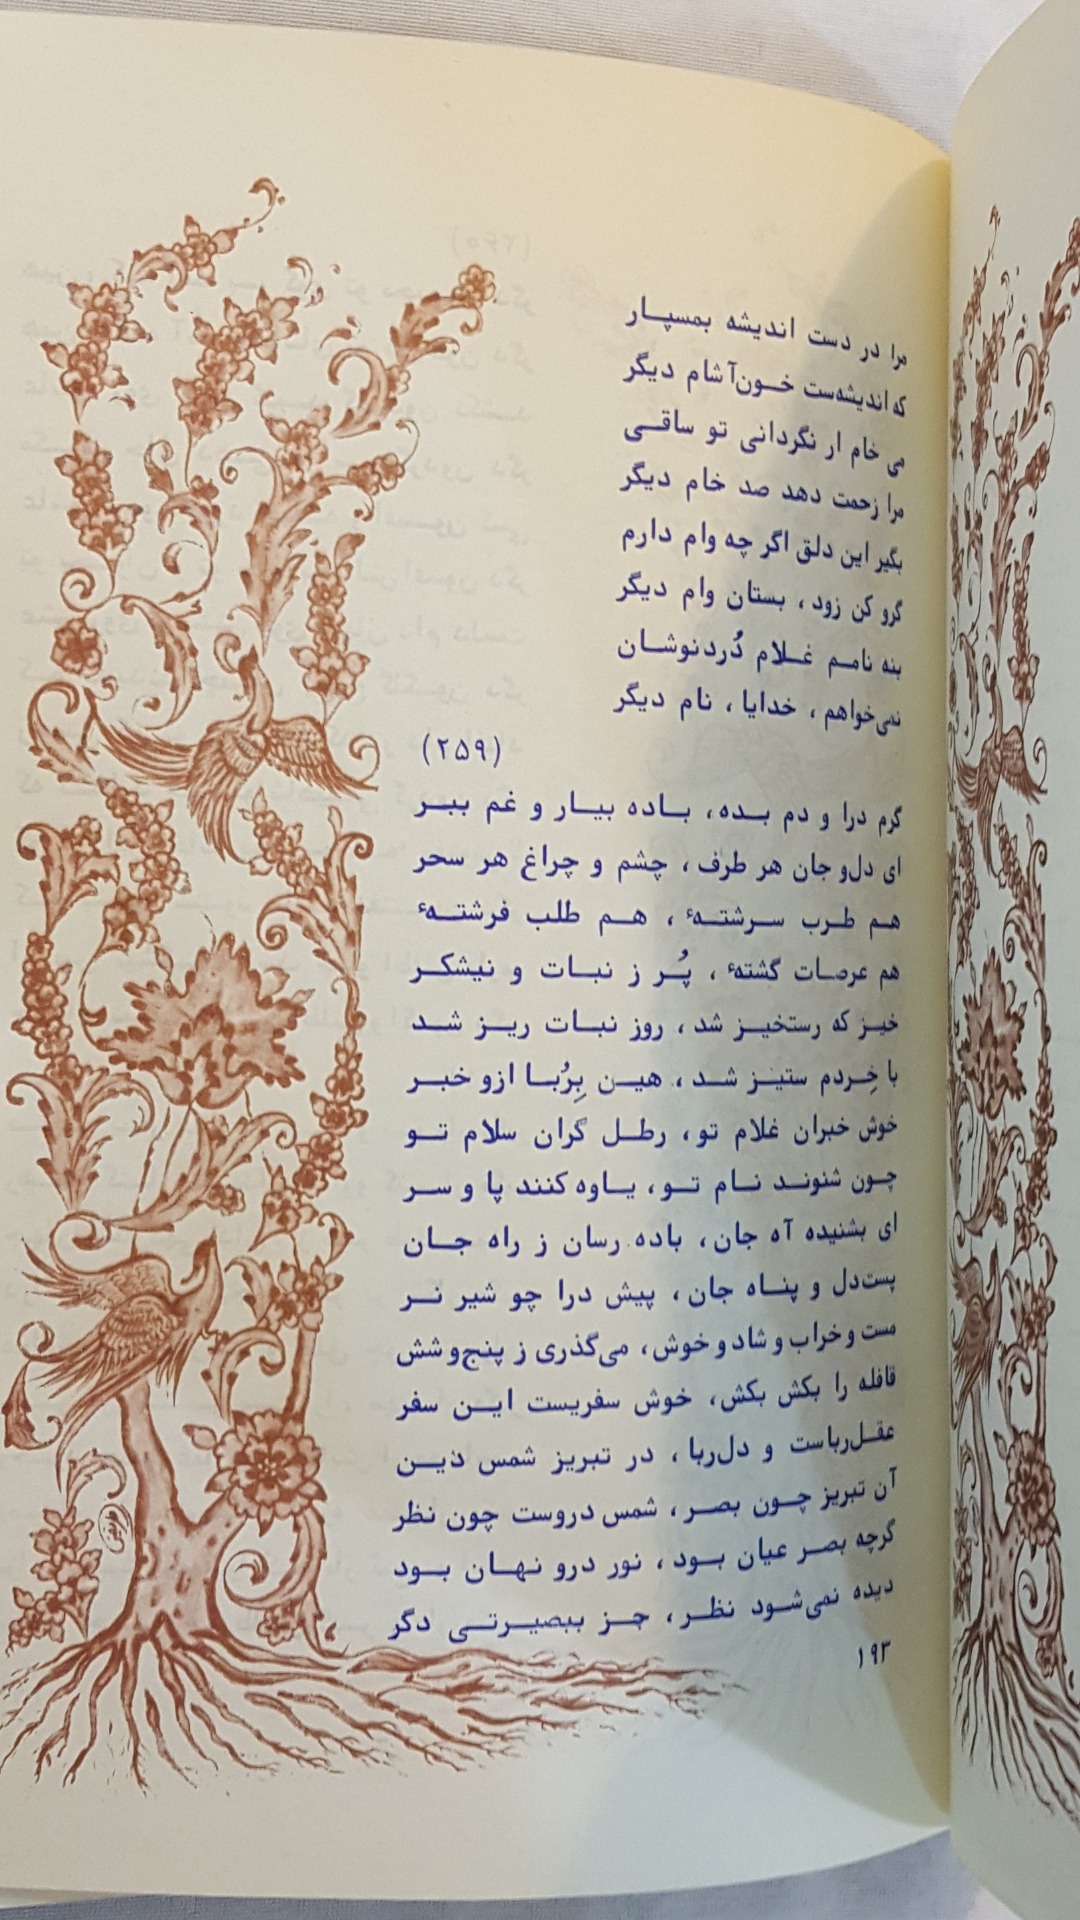 مرا در دست اندیشه بمسپـار
که اندیشه‌ست خـون‌آشام دیگر
می خام ار نگردانی تو ساقـی
مرا زحمت دهد صد خام دیگر
بگیر این دلق اگر چه وام دارم
گرو کن زود، بستان وام دیگر
بنه نامـم غـلام دُردنوشـان
نمی‌خواهم، خدایا، نام دیگر
(۲۵۹)
گرم درا و دم بـده، بـاده بیـار و غم ببـر
ای دل‌و جان هر طرف، چشم و چراغ هر سحر
هـم طـرب سـرشتـهٔ، هـم طلب فرشتـهٔ
هم عرصـات گشتهٔ، پُـر ز نبـات و نیشکـر
خیـز که رستخیـز شد، روز نبـات ریـز شـد
با خِـردم ستیـز شـد، هیـن بِرُبـا ازو خبـر
خوش خبران غلام تو، رطـل گران سلام تـو
چـون شنونـد نـام تـو، یـاوه کنند پا و سـر
ای بشنیده آه جان، باده رسان ز راه جـان
پست‌دل و پنـاه جان، پیش درا چو شیر نـر
مست و خراب و شاد و خوش، می‌گذری ز پنج‌و شش
قافله را بکش بکش، خوش سفریست ایـن سفر
عقـل‌رباست و دل‌ربا، در تبریز شمس دیـن
آن تبریز چـون بصـر، شمس دروست چون نظر
گرچه بصـر عیان بـود، نور درو نهـان بـود
دیده نمی‌شـود نظـر، جـز ببصیـرتـی دگر
۱۹۳